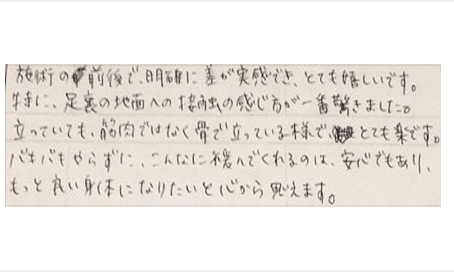 施術の前後で、明確に差が実感でき、とても嬉しいです。
特に、足裏の地面への接触の感じ方が一番驚きました。
立っていても、筋肉ではなく骨で立っている様で、とても楽です。
バキバキやらずに、こんなに緩んでくれるのは、安心でもあり、
もっと良い身体になりたいと心から思えます。